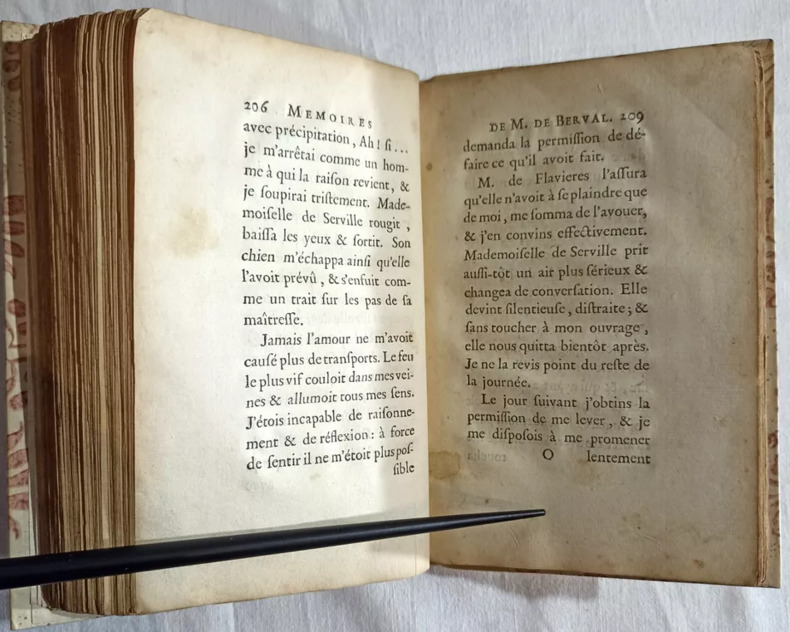 206 MEMOIRES
avec précipitation, Ah! ſi...
je m'arrêtai comme un hom-
me à qui la raiſon revient, &
je ſoupirai triſtement. Made-
moiſelle de Serville rougit,
baiſſa les yeux & ſortit. Son
chien m'échappa ainſi qu'elle
l'avoit prévû, & s'enfuit com-
me un trait ſur les pas de ſa
maîtreſſe.
Jamais l'amour ne m'avoit
cauſé plus de tranſports. Le feu
le plus vif couloit dans mes vei-
nes & allumoit tous mes ſens.
J'étois incapable de raiſonne-
ment & de réflexion : à force
de ſentir il ne m'étoit plus poſ-
ſible
DE M. DE BERVAL. 209
demanda la permiſſion de dé-
faire ce qu'il avoit fait.
M. de Flavieres l'aſſura
qu'elle n'avoit à ſe plaindre que
de moi, me ſomma de l'avouer,
& j'en convins effectivement.
Mademoiſelle de Serville prit
auſſi-tôt un air plus ſérieux &
changea de converſation. Elle
devint ſilentieuſe, diſtraite ; &
ſans toucher à mon ouvrage,
elle nous quitta bientôt après.
Je ne la revis point du reſte de
la journée.
Le jour ſuivant j'obtins la
permiſſion de me lever, & je
me diſpoſois à me promener
O lentement